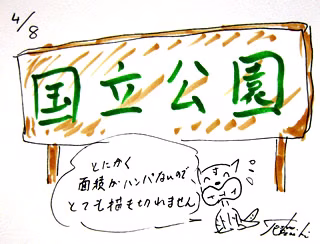 4/8
国立公園
とにかく
面積がハンパないので
とても描き切れません